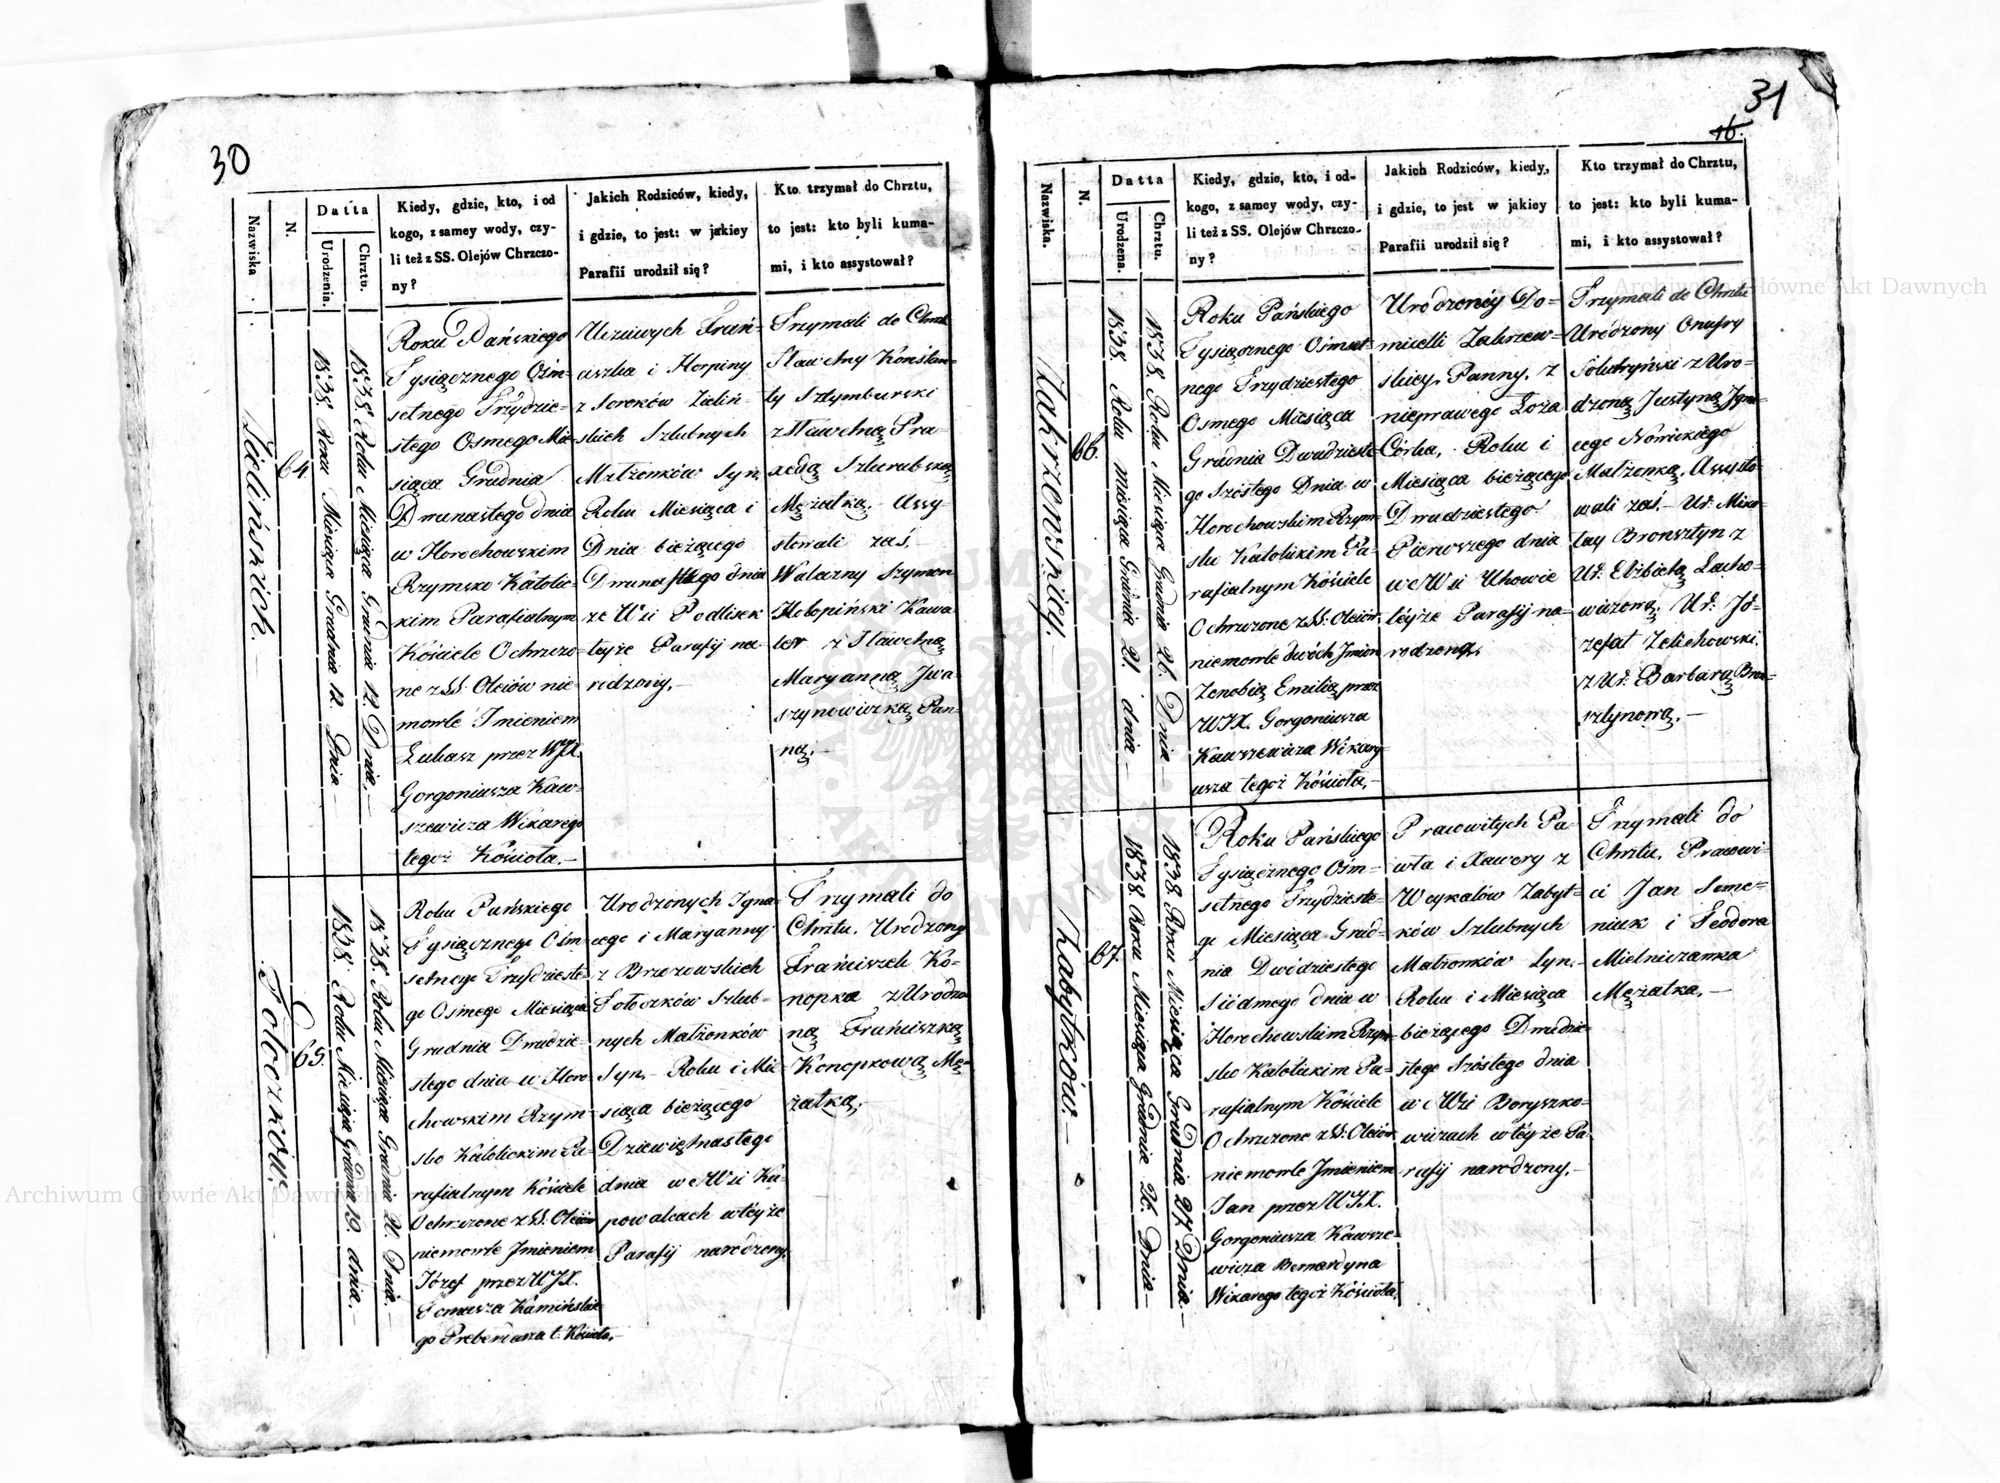 30
Nazwiska
N.
Datta
Urodzenia.
Chrztu.
Kiedy, gdzie, kto, i od
kogo, z samey wody, czy-
li też z SS. Olejów Chrzczo-
ny?
Jakich Rodziców, kiedy,
i gdzie, to jest: w jakiey
Parafii urodził się?
Kto trzymał do Chrztu,
to jest: kto byli kuma-
mi, i kto assystował?
Zielińskich.
64
1838. Roku Miesiąca Grudnia 12. Dnia
1838. Roku Miesiąca Grudnia 12. Dnia.
Roku Pańskiego
Tysiącznego Ośm-
setnego Trzydzie-
stego Osmego Mie-
siąca Grudnia
Dwunastego dnia
w Horochowskim
Rzymsko Katolic-
kim Parafialnym
Kościele Ochrzczo-
ne z SS: Oleiów nie-
mowle Imieniem
Łukasz przez WJX.
Gorgoniusza Kaw-
szewicza Wikarego
tegoż Kościoła.
Uczciwych Fran-
ciszka i Horpiny
z Soroków Zieliń-
skich Szlubnych
Małżonków Syn,
Roku Miesiąca i
Dnia bieżącego
Dwunastego dnia
ze Wsi Podlisek
teyże Parafij na-
rodzony.
Trzymali do Chrztu
Sławetny Konstan-
ty Sztymburski
z Sławetną Pra-
xedą Szkurabską
Mężatką. Assy-
stowali zaś
Waleczny Szymon
Hołopiński Kawa-
ler z Sławetną
Maryanną Iwa-
szynowiczką Pan-
ną.
Tołoczków.
65.
1838. Roku Miesiąca Grudnia 19. dnia.
1838. Roku Miesiąca Grudnia 20. Dnia.
Roku Pańskiego
Tysiącznego Ośm-
setnego Trzydzieste-
go Osmego Miesiąca
Grudnia Dwudzie-
stego dnia w Horo-
chowskim Rzym-
sko Katolickim Pa-
rafialnym Kościele
Ochrzczone z SS: Oleiów
niemowle Jmieniem
Józef przez WJX.
Tomasza Kamińskie-
go Prebendarza t. Kościoła.
Urodzonych Igna-
cego i Maryanny
z Brzozowskich
Tołoczków Szlub-
nych Małżonków
Syn, Roku i Mie-
siąca bieżącego
Dziewiętnastego
dnia we Wsi Ku-
powalcach w téyże
Parafij narodzony.
Trzymali do
Chrztu. Urodzony
Franciszek Ko-
nopka z Urodzo-
ną Franciszką
Konopkową Mę-
żatką.
31
16.
Nazwiska.
N.
Datta
Urodzena.
Chrztu.
Kiedy, gdzie, kto, i od-
kogo, z samey wody, czy-
li też z SS. Olejów Chrzczo-
ny?
Jakich Rodziców, kiedy,
i gdzie, to jest w jakiey
Parafii urodził się?
Kto trzymał do Chrztu,
to jest: kto byli kuma-
mi, i kto assystował?
Zakrzewskiey.
66.
1838. Roku Miesiąca Grudnia 21. dnia
1838. Roku Miesiąca Grudnia 26. Dnia
Roku Pańskiego
Tysiącznego Ośmset-
nego Trzydziestego
Osmego Miesiąca
Grudnia Dwudzieste-
go Szóstego Dnia w
Horochowskim Rzym-
sko Katolickim Pa-
rafialnym Kościele
Ochrzczone z SS: Oleiów
niemowle dwóch Jmion
Zenobią Emilią przez
WJX. Gorgoniusza
Kawszewicza Wikary-
usza tegoż Kościoła.
Urodzonéy Do-
micelli Zakrzew-
skiey, Panny, z
nieprawego Łoża
Córka, Roku i
Miesiąca bieżącego
Dwudziestego
Pierwszego dnia
we Wsi Uhowie
téyże Parafij na-
rodzona.
Trzymali do Chrztu
Urodzony Onufry
Sołutryński z Uro-
dzoną Justyną Igna-
cego Nowickiego
Małżonką. Assysto-
wali zaś. Ur. Miko-
łay Bronsztyn z
Ur. Elżbietą Lacho-
wiczową. Ur. Jó-
zefat Zelichowski.
z Ur. Barbarą Bron-
sztynową.
Zabytków.
67.
1838. Roku Miesiąca Grudnia 26. Dnia
1838. Roku Miesiąca Grudnia 27. Dnia
Roku Pańskiego
Tysiącznego Ośm-
setnego Trzydzieste-
go Miesiąca Grud-
nia Dwódziestego
Siódmego dnia w
Horochowskim Rzym-
sko Katolickim Pa-
rafialnym Kościele
Ochrzczone z SS: Oleiów
niemowle Jmieniem
Jan przez WJX.
Gorgoniusza Kawsze-
wicza Bernardyna
Wikarego tegoż Kościoła.
Pracowitych Pa-
wła i Xawery z
Weykałów Zabyt-
ków Szlubnych
Małżonków Syn,
Roku i Miesiąca
bieżącego Dwudzie-
stego Szóstego dnia
we Wsi Boryszko-
wicach w téyże Pa-
rafij narodzony.
Trzymali do
Chrztu. Pracowi-
ci Jan Seme-
niuk i Teodora
Mielniczanka
Mężatka.
Archiwum Główne Akt Dawnych
Archiwum Główne Akt Dawnych